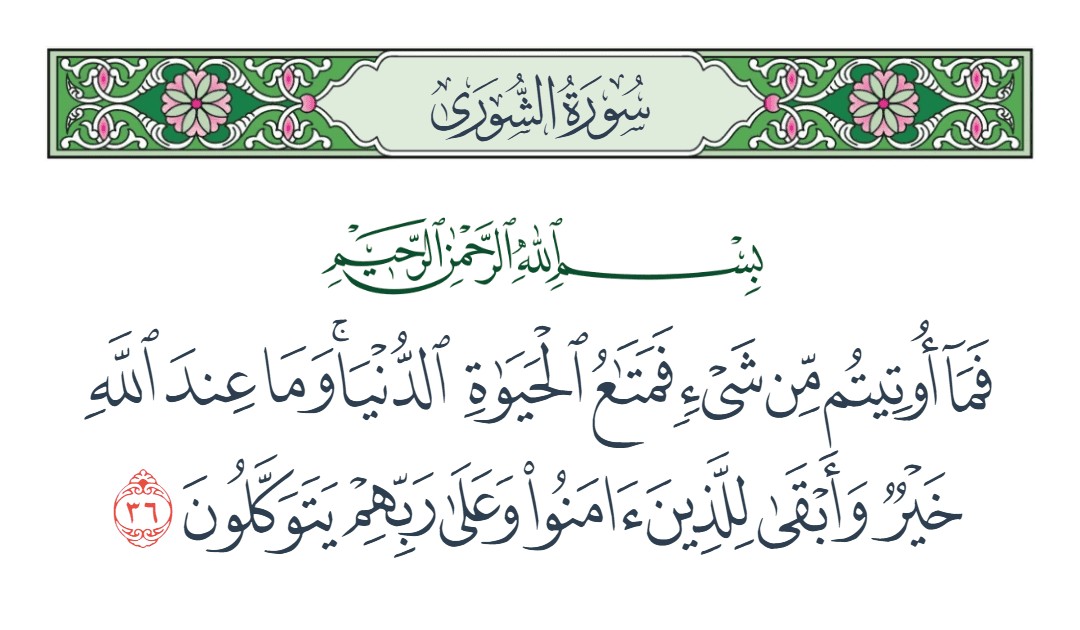 سُورَةُ الشُّورَىٰ
بِسْمِ ٱللَّهِ ٱلرَّحْمَٰنِ ٱلرَّحِيمِ
فَمَآ أُوتِيتُم مِّن شَىْءٍ فَمَتَٰعُ ٱلْحَيَوٰةِ ٱلدُّنْيَا ۚ وَمَا عِندَ ٱللَّهِ
خَيْرٌ وَأَبْقَىٰ لِلَّذِينَ ءَامَنُوا۟ وَعَلَىٰ رَبِّهِمْ يَتَوَكَّلُونَ ٣٦